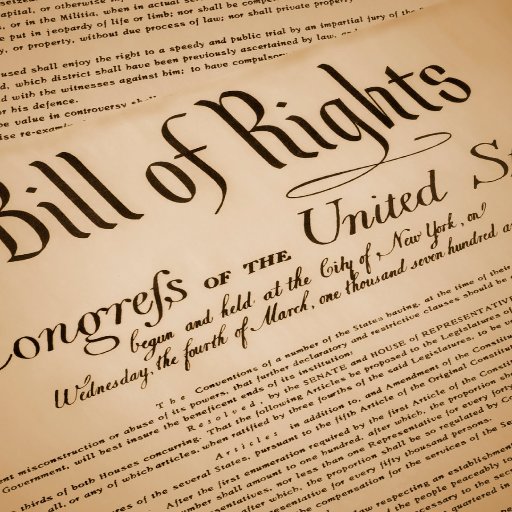 seized.
apital, or otherwise
, or in the Militia, when in actual
e put in jeopardy of life or limb; nor shall be
y, or property, without due process of law; nor shall private property
used shall enjoy the right to a speedy and public trial by an impartial jury of the
d, which district shall have been previously ascertained by law,
d with the witnesses against him; to have
or his defence.
e value in controversy
ise
Bill of Rights
Congreſs OF THE United
begun and held at the City of New York, on
Wednesday, the fourth of March, one thousand seven hundred
The Conventions of a number of the States having, at the time of their
nt misconstruction or abuse of its powers, that further declaratory and restrictive clauses should be
Government, will best insure the beneficent ends of its institution;
Resolved, by the SENATE and HOUSE of REPRESENTATIVE
thirds of both Houses concurring. That the following Articles be proposed to the Legislatures of
all, or any of which articles, when ratified by three fourths of the said Legislatures, to be
Articles in addition to, and Amendment of the
res of the several States, pursuant to the fifth Article of the Original
After the first enumeration required by the first Article of the
number shall amount to one hundred, after which, the proportion
entatives, nor less than one Representative for every forty
after which, the proportion shall be so regulated by
esentative for every fifty thousand persons.
the compensation for the services of the
law respecting an establishment
the people peaceably